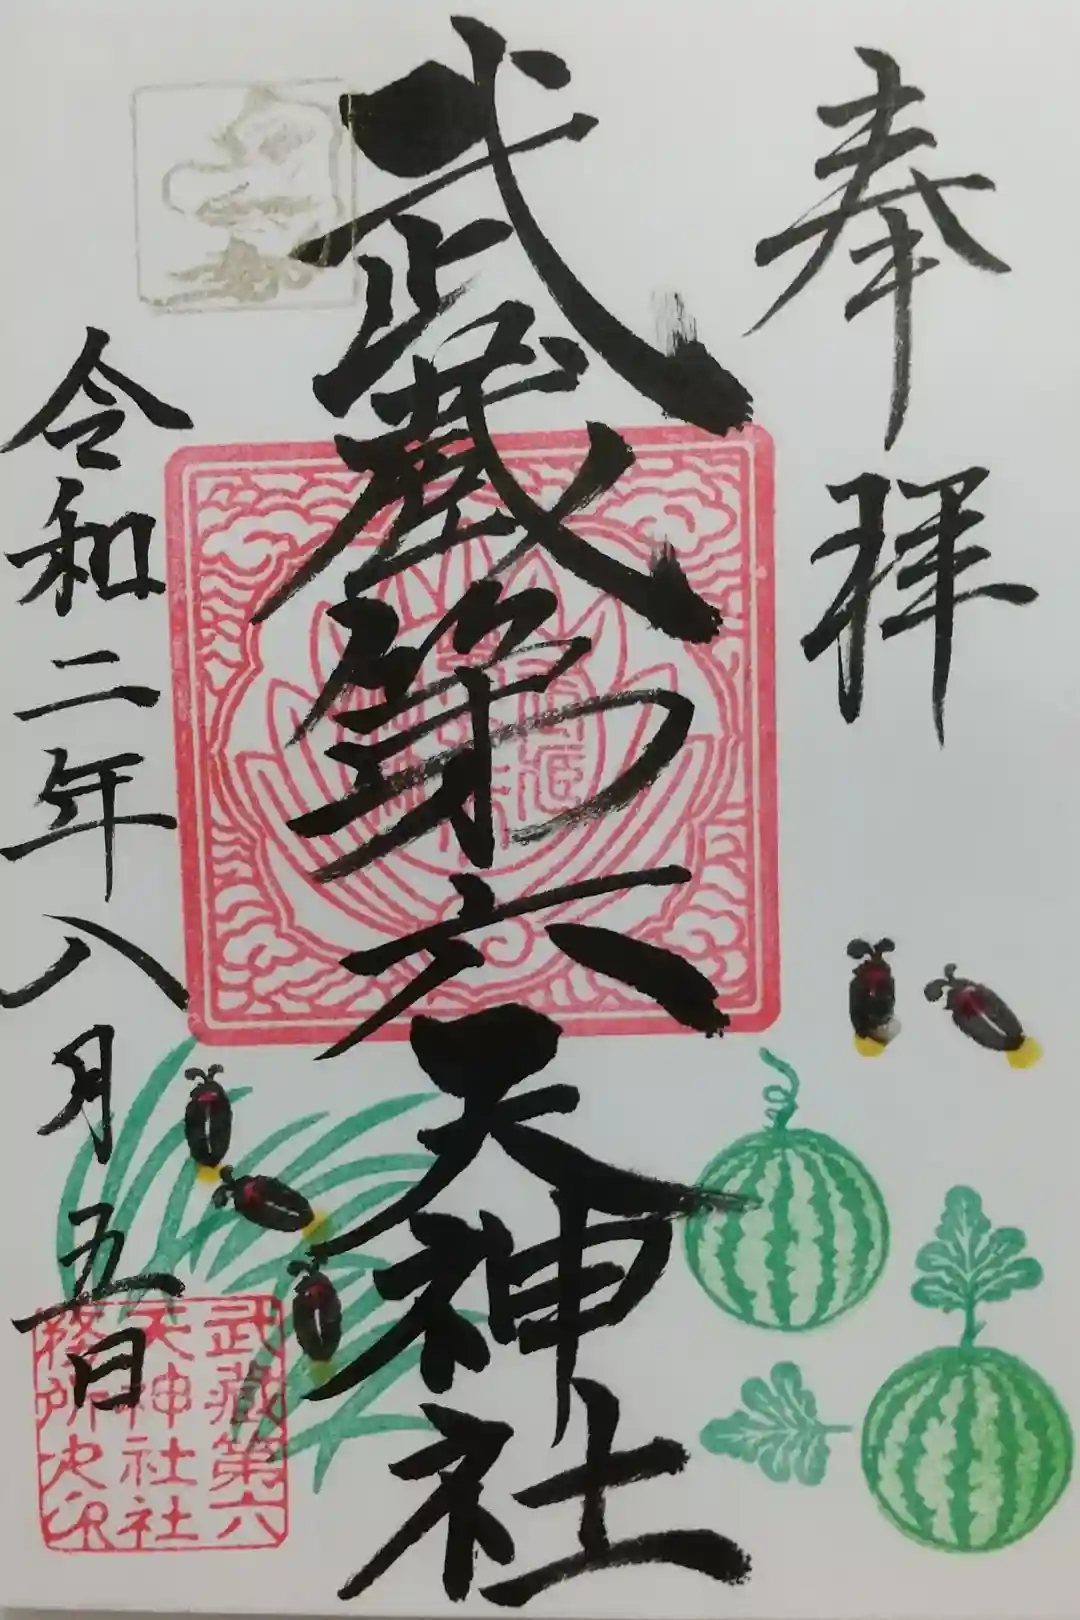 奉拝
武蔵第六天神社
令和二年八月五日
武蔵第六
天神社社
務所之印